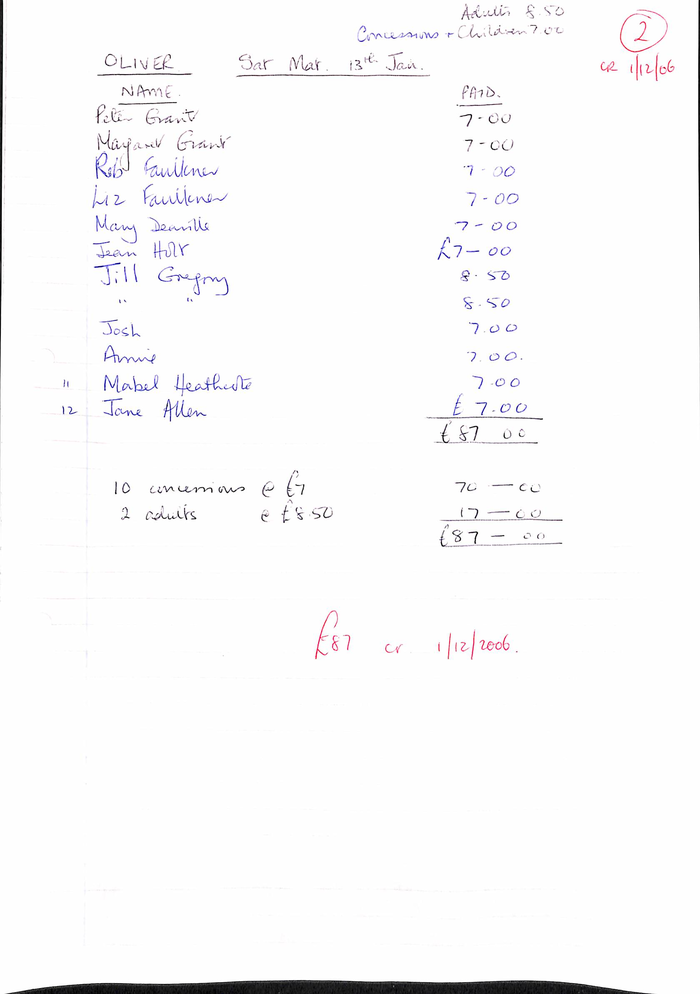 Adults 8.50
Concessions + Children 7.00
2
CR 1/12/06
OLIVER Sat Mat. 13th Jan.
NAME. PAID.
Peter Grant 7-00
Margaret Grant 7-00
Rob Faulkner 7-00
Liz Faulkner 7-00
Mary Denville 7-00
Jean Holt £7-00
Jill Gregory 8.50
" " 8.50
Josh 7.00
Annie 7.00.
11 Mabel Heathcote 7.00
12 Jane Allen £7.00
£87 00
10 concessions @ £7 70-00
2 adults @ £8.50 17-00
£87-00
£87 CR 1/12/2006.